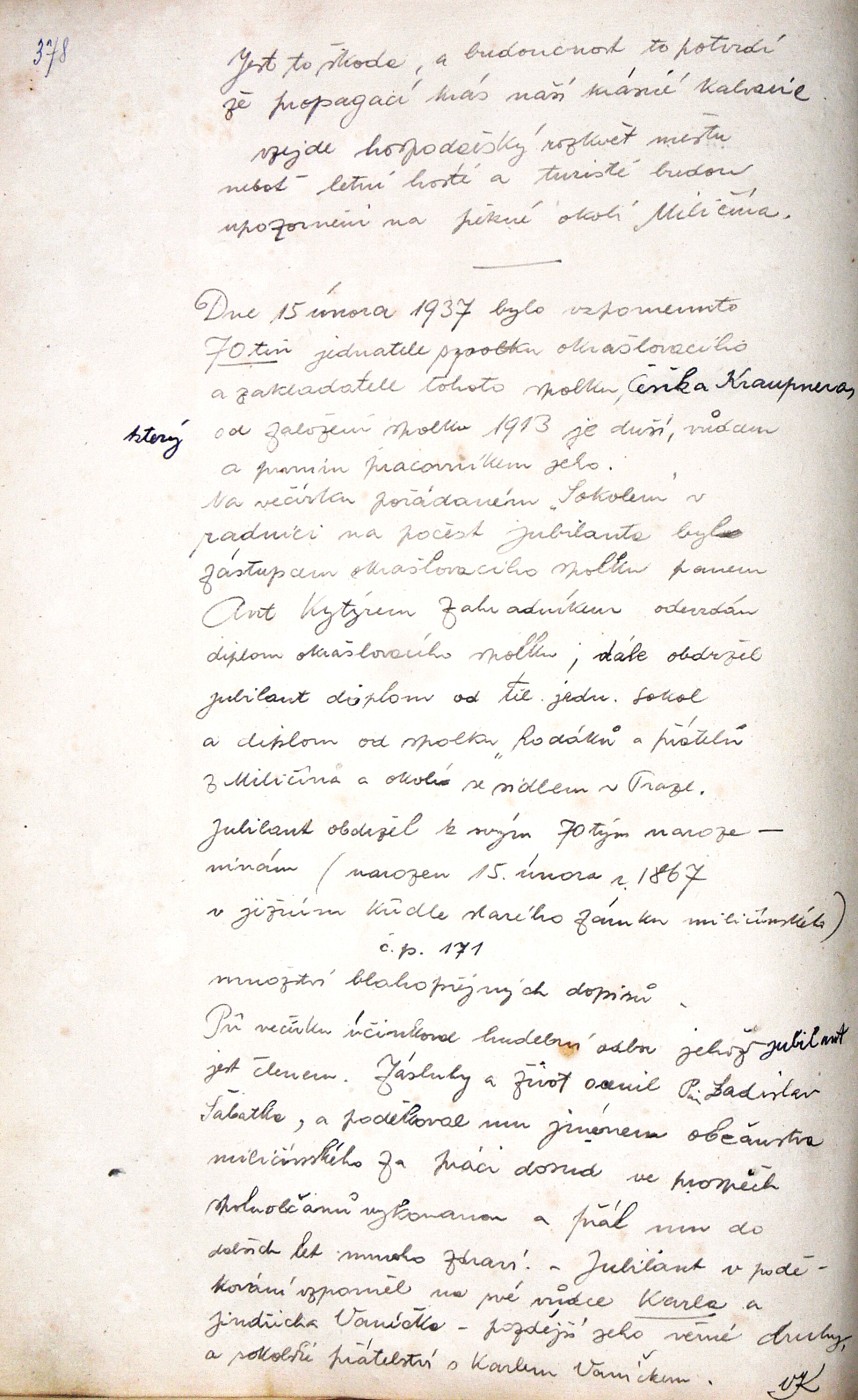 378
Jest to škoda, a budoucnost to potvrdí
že propagací krás naší krásné Kalvarie
vzejde hospodářský rozkvět městu
neboť letní hosté a turisté budou
upozorněni na pěkné okolí Miličína.
Dne 15 února 1937 bylo vzpomenuto
70tin jednatele spolku okrašlovacího
a zakladatele tohoto spolku, Čeňka Kraupnera,
který od založení spolku 1913 je duší, vůdcem
a prvním pracovníkem jeho.
Na večírku pořádaném „Sokolem" v
radnici na počest jubilanta byl
zástupcem okrašlovacího spolku panem
Ant Kytýrem zahradníkem odevzdán
diplom okrašlovacího spolku; dále obdržel
jubilant diplom od těl. jedn. Sokol
a diplom od spolku „Rodáků a přátelů
z Miličína a okolí se sídlem v Praze.
Jubilant obdržel k svým 70tým naroze-
ninám (narozen 15. února r. 1867
v jižním křídle starého zámku miličínského)
č.p. 171
množství blahopřejných dopisů.
Při večírku účinkoval hudební odbor jehož jubilant
jest členem. Zásluhy a život ocenil P. Ladislav
Šabatka, a poděkoval mu jménem občanstva
miličínského za práci dosud ve prospěch
spoluobčanů vykonanou a přál mu do
dalších let mnoho zdraví. - Jubilant v podě-
kování vzpomněl na své vůdce Karla a
Jindřicha Vaníčka - pozdější jeho věrné druhy,
a sokolské přátelství s Karlem Vaníčkem.
VK